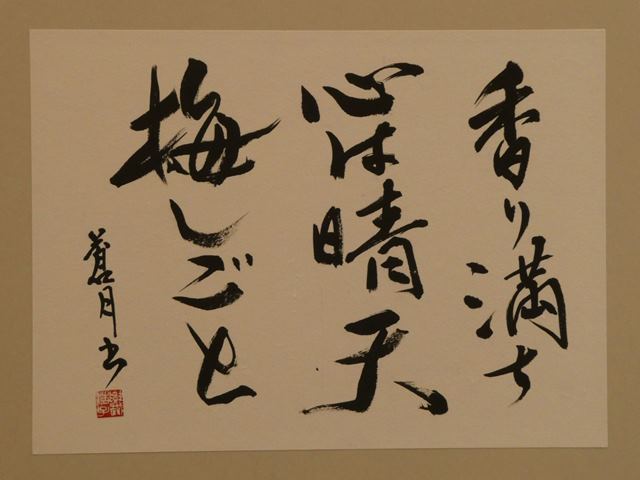 香り満ち
心は晴天
梅しごと
蒼月书